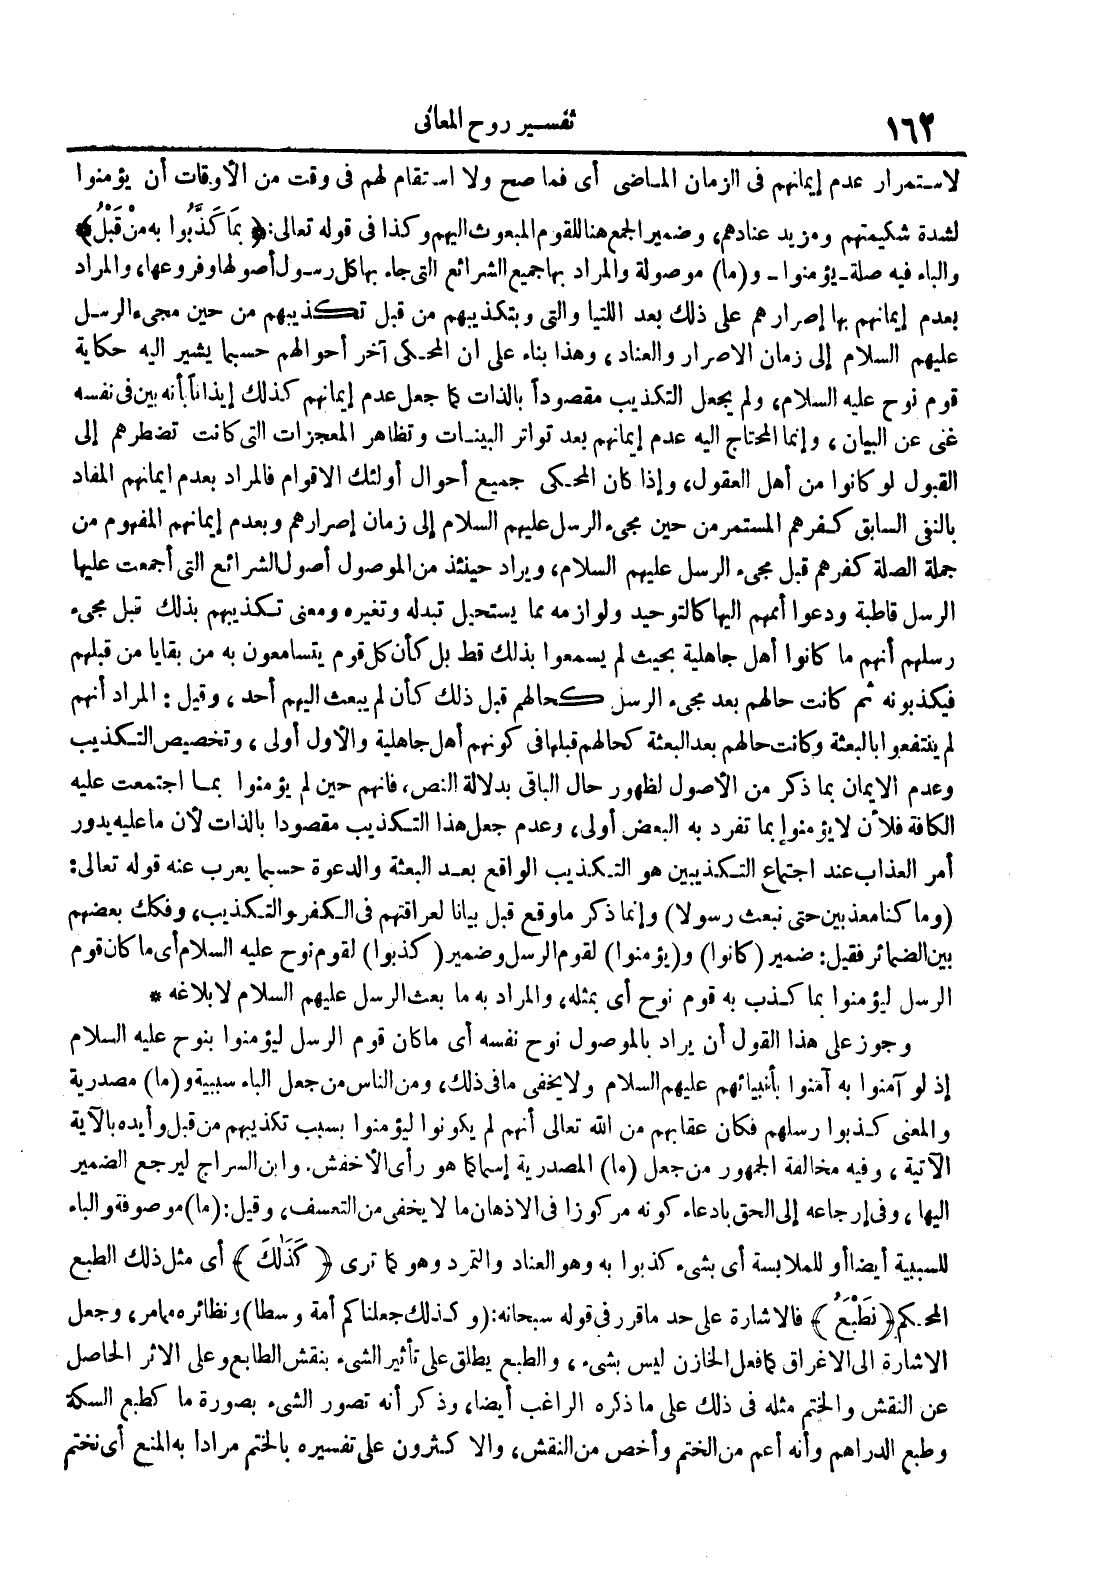 ١٦٢
تفسير روح المعانى
لاستمرار عدم إيمانهم فى الزمان الماضى أى فما صح ولا استقام لهم فى وقت من الأوقات أن يؤمنوا
لشدة شكيمتهم ومزيد عنادهم، وضمير الجمع هنا للقوم المبعوث اليهم وكذا فى قوله تعالى: ﴿ بِمَا كَذَّبُوا بِهِ مِنْ قَبْلُ ﴾
والباء فيه صلة ـ يؤمنوا ـ و(ما) موصولة والمراد بها جميع الشرائع التى جاء بها كل رسول أصولها وفروعها، والمراد
بعدم إيمانهم بها إصرارهم على ذلك بعد اللتيا والتى وبتكذيبهم من قبل تكذيبهم من حين مجىء الرسل
عليهم السلام إلى زمان الاصرار والعناد، وهذا بناء على ان المحكى آخر أحوالهم حسبما يشير اليه حكاية
قوم نوح عليه السلام، ولم يجعل التكذيب مقصوداً بالذات كما جعل عدم إيمانهم كذلك إيذاناً بأنه بين فى نفسه
غنى عن البيان، وإنما المحتاج اليه عدم إيمانهم بعد تواتر البينات وتظاهر المعجزات التى كانت تضطرهم إلى
القبول لو كانوا من أهل العقول، وإذا كان المحكى جميع أحوال أولئك الاقوام فالمراد بعدم ايمانهم المفاد
بالنفى السابق كفرهم المستمر من حين مجىء الرسل عليهم السلام إلى زمان إصرارهم وبعدم إيمانهم المفهوم من
جملة الصلة كفرهم قبل مجىء الرسل عليهم السلام، ويراد حينئذ من الموصول أصول الشرائع التى أجمعت عليها
الرسل قاطبة ودعوا أممهم اليها كالتوحيد ولوازمه مما يستحيل تبدله وتغيره ومعنى تكذيبهم بذلك قبل مجىء
رسلهم أنهم ما كانوا أهل جاهلية بحيث لم يسمعوا بذلك قط بل كأن كل قوم يتسامعون به من بقايا من قبلهم
فيكذبونه ثم كانت حالهم بعد مجىء الرسل كحالهم قبل ذلك كأن لم يبعث اليهم أحد، وقيل: المراد أنهم
لم ينتفعوا بالبعثة وكانت حالهم بعد البعثة كحالهم قبلها فى كونهم أهل جاهلية والأول أولى، وتخصيص التكذيب
وعدم الايمان بما ذكر من الأصول لظهور حال الباقى بدلالة النص، فانهم حين لم يؤمنوا بما اجتمعت عليه
الكافة فلأن لا يؤمنوا بما تفرد به البعض أولى، وعدم جعل هذا التكذيب مقصودا بالذات لأن ما عليه يدور
أمر العذاب عند اجتماع التكذيبين هو التكذيب الواقع بعد البعثة والدعوة حسبما يعرب عنه قوله تعالى:
(وما كنا معذبين حتى نبعث رسولا) وإنما ذكر ما وقع قبل بيانا لعراقتهم فى الكفر والتكذيب، وفكك بعضهم
بين الضمائر فقيل: ضمير (كانوا) و(يؤمنوا) لقوم الرسل وضمير (كذبوا) لقوم نوح عليه السلام أى ما كان قوم
الرسل ليؤمنوا بما كذب به قوم نوح أى بمثله، والمراد به ما بعث الرسل عليهم السلام لابلاغه *
وجوز على هذا القول أن يراد بالموصول نوح نفسه أى ما كان قوم الرسل ليؤمنوا بنوح عليه السلام
إذ لو آمنوا به آمنوا بأنبيائهم عليهم السلام ولا يخفى ما فى ذلك، ومن الناس من جعل الباء سببية و(ما) مصدرية
والمعنى كذبوا رسلهم فكان عقابهم من الله تعالى أنهم لم يكونوا ليؤمنوا بسبب تكذيبهم من قبل وأيده بالآية
الآتية، وفيه مخالفة الجمهور من جعل (ما) المصدرية إسما كما هو رأى الأخفش. وابن السراج ليرجع الضمير
اليها، وفى إرجاعه إلى الحق بادعاء كونه مركوزا فى الاذهان ما لا يخفى من التعسف، وقيل: (ما) موصوفة والباء
للسببية أيضا أو للملابسة أى بشىء كذبوا به وهو العناد والتمرد وهو كما ترى ﴿ كَذَلِكَ ﴾ أى مثل ذلك الطبع
المحكم ﴿ نَطْبَعُ ﴾ فالاشارة على حد ما قرر فى قوله سبحانه: (وكذلك جعلناكم أمة وسطا) ونظائره مما مر، وجعل
الاشارة الى الاغراق كما فعل الخازن ليس بشىء، والطبع يطلق على تأثير الشىء بنقش الطابع وعلى الاثر الحاصل
عن النقش والختم مثله فى ذلك على ما ذكره الراغب أيضا، وذكر أنه تصور الشىء بصورة ما كطبع السكة
وطبع الدراهم وأنه أعم من الختم وأخص من النقش، والاكثرون على تفسيره بالختم مرادا به المنع أى نختم